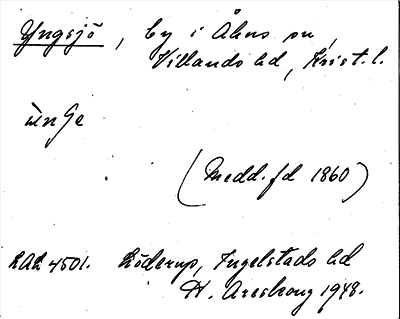 Yngsjö, by i Åhus sn,
Villands hd, Krist. l.
ùnge
(Medd. fd 1860)
LAL 4501. Löderup, Ingelstads hd
H. Areskoug 1948.